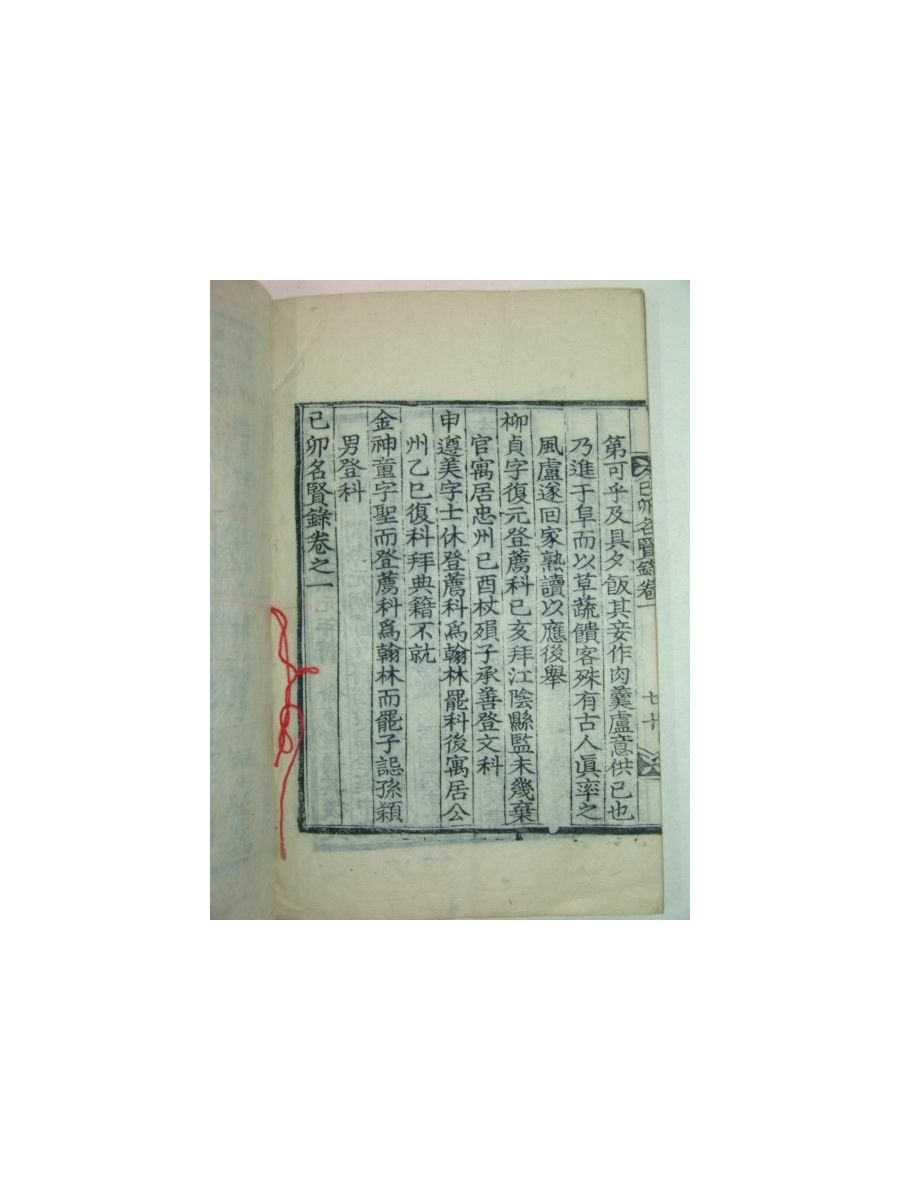 己卯名賢錄卷一
七十
第可乎及具夕飯其妾作肉羹盧意供己也
乃進于阜而以草蔬饋客殊有古人眞率之
風盧遂回家熟讀以應後舉
柳貞字復元登薦科己亥拜江陰縣監未幾棄
官寓居忠州己酉杖殞子承善登文科
申遵美字士休登薦科爲翰林罷科後寓居公
州乙巳復科拜典籍不就
金神童字聖而登薦科爲翰林而罷子誋孫纇
男登科
己卯名賢錄卷之一